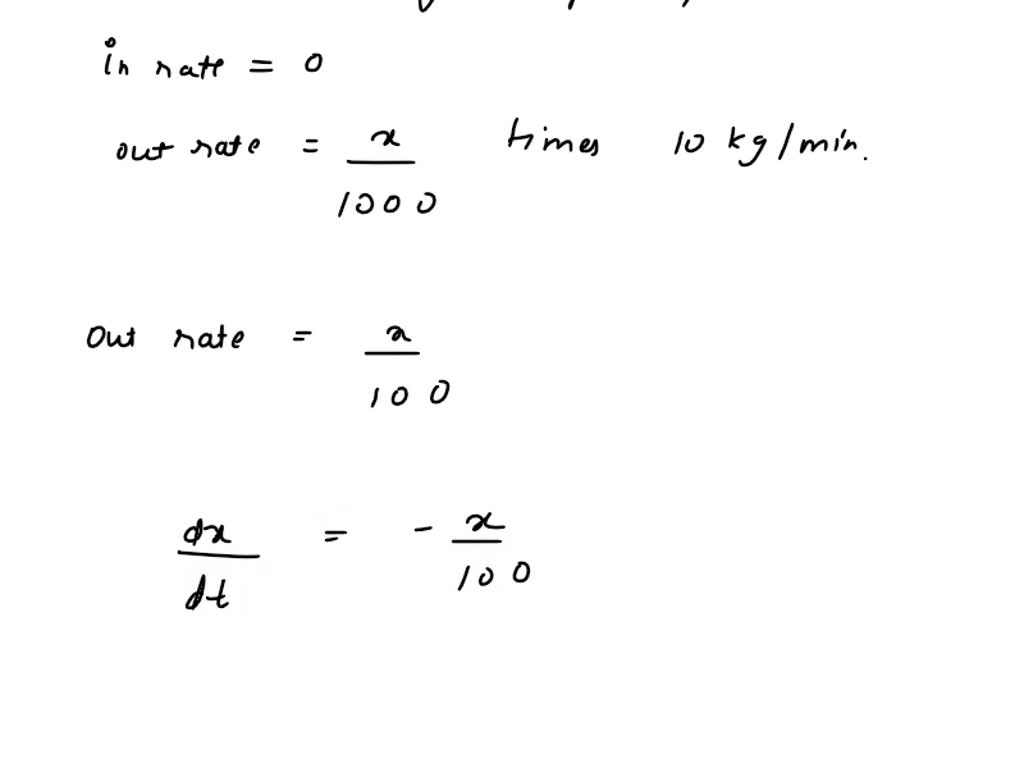 in rate = 0
out rate = x/1000 times 10 kg/min.
Out rate = x/100
dx/dt = - x/100